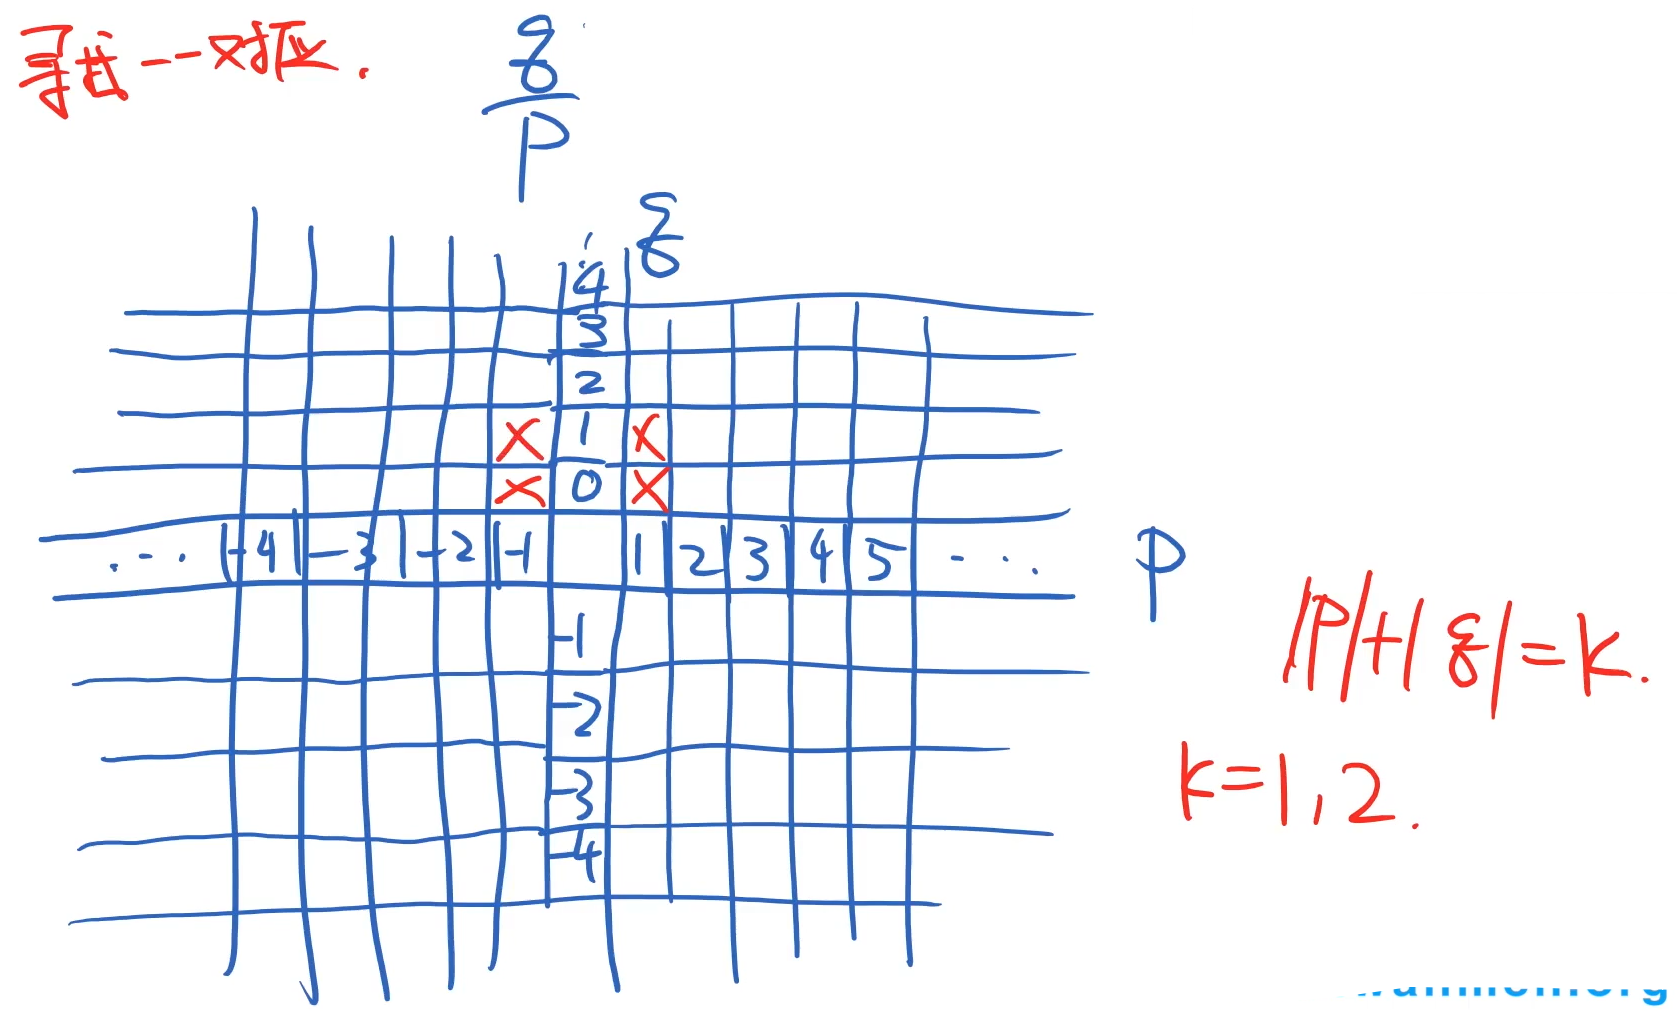 寻找一一对应.
q
P
q
4
3
2
1
0
... -4 -3 -2 -1 1 2 3 4 5 ... P
-1
-2
-3
-4
|P|+|q|=k.
k=1,2.